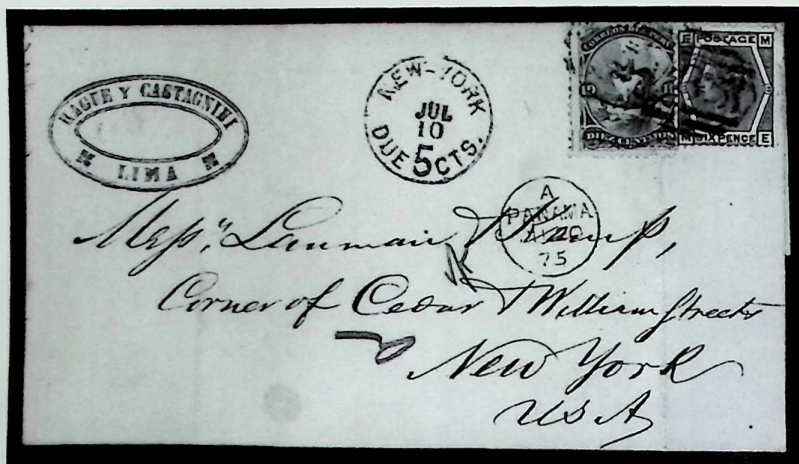 HAGUE Y CASTAGNINI
LIMA
NEW-YORK
JUL
10
DUE 5 CTS.
CORREOS DEL PERU
DIEZ CENTAVOS
E POSTAGE M
M SIX PENCE E
A
PANAMA
75
Messrs. Lanman & Kemp,
Corner of Cedar & William Streets
New York
USA